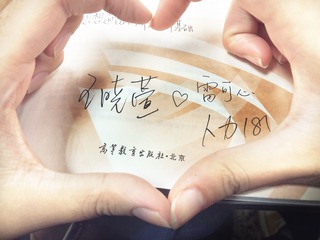 王晓萱 ♡ 雷可心
人力181
高等教育出版社·北京